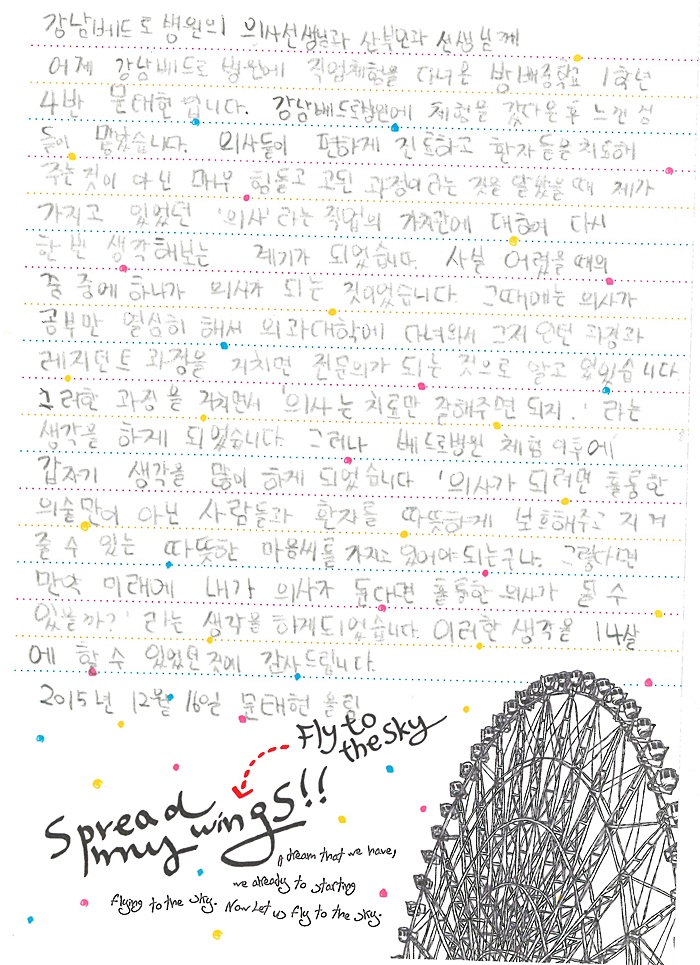 강남베드로 병원의 의사선생님과 산부인과 선생님께
어제 강남베드로 병원에 직업체험을 다녀온 방배중학교 1학년
4반 문태현 입니다. 강남베드로병원에 체험을 갔다온 후 느낀 점
들이 많았습니다. 의사들이 편하게 진료하고 환자들을 치료해
주는 것이 아닌 매우 힘들고 고된 과정이라는 것을 알았을 때 제가
가지고 있었던 '의사' 라는 직업의 가치관에 대하여 다시
한 번 생각해보는 계기가 되었습니다. 사실 어렸을 때의
꿈 중에 하나가 의사가 되는 것이었습니다. 그때에는 의사가
공부만 열심히 해서 의과대학에 다녀와서 그저 인턴 과정과
레지던트 과정을 거치면 전문의가 되는 것으로 알고 있었습니다.
그러한 과정을 거치면서 '의사는 치료만 잘해주면 되지.' 라는
생각을 하게 되었습니다. 그러나 베드로병원 체험 이후에
갑자기 생각을 많이 하게 되었습니다 '의사가 되려면 훌륭한
의술만이 아닌 사람들과 환자를 따뜻하게 보호해주고 지켜
줄 수 있는 따뜻한 마음씨를 가지고 있어야 되는구나. 그렇다면
만약 미래에 내가 의사가 된다면 훌륭한 의사가 될 수
있을까?' 라는 생각을 하게되었습니다. 이러한 생각을 14살
에 할 수 있었던 것에 감사드립니다.
2015년 12월 16일 문태현 올림
Fly to
the sky
Spread
my wings!!
A dream that we have,
we already to starting
flying to the sky. Now Let us fly to the sky.